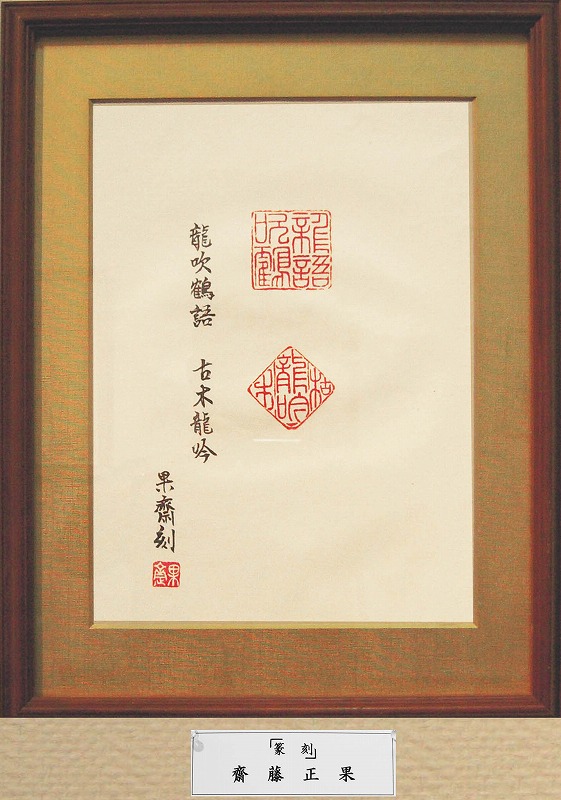 龍吹鶴語　古木龍吟
果齋刻
果齋
「篆刻」
齋藤正果